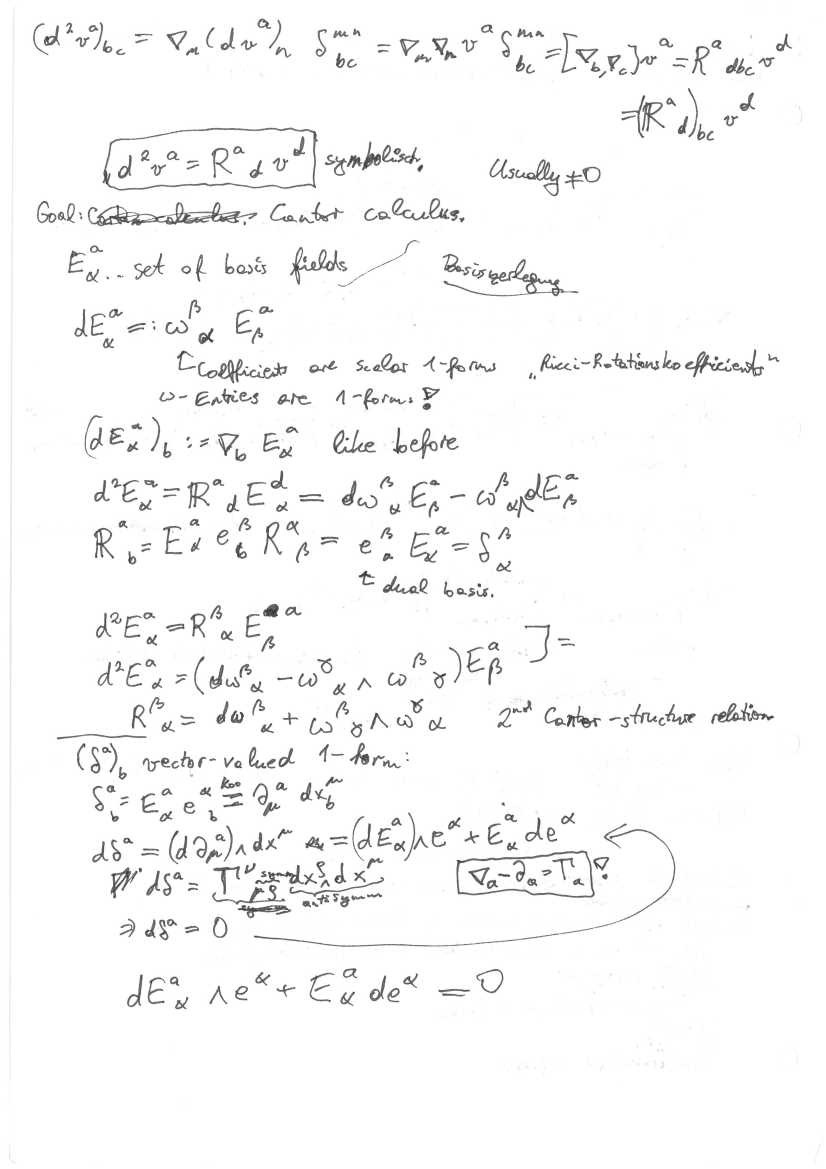 (d²vᵃ)_bc = ∇_m(dvᵃ)_n δ^mn_bc = ∇_m∇_n vᵃ δ^mn_bc = [∇_b,∇_c]vᵃ = Rᵃ_dbc v^d
= (ℝᵃ_d)_bc v^d
d²vᵃ = Rᵃ_d v^d symbolisch. Usually ≠0
Goal: Cantor calculus.
E_αᵃ .. set of basis fields Basiszerlegung
dE_αᵃ =: ω^β_α E_βᵃ
Coefficients are scalar 1-forms „Ricci-Rotationskoefficients"
ω-Entries are 1-forms!
(dE_αᵃ)_b := ∇_b E_αᵃ like before
d²E_αᵃ = ℝᵃ_d E_α^d = dω^β_α E_βᵃ - ω^β_α ∧ dE_βᵃ
ℝᵃ_b = E_αᵃ e_b^β R^α_β = e_a^β E_αᵃ = δ_α^β
↑ dual basis.
d²E_αᵃ = R^β_α E_β ᵃ
d²E_αᵃ = (dω^β_α - ω^γ_α ∧ ω^β_γ) E_βᵃ ] =
R^β_α = dω^β_α + ω^β_γ ∧ ω^γ_α 2nd Cantor-structure relation
(δᵃ)_b vector-valued 1-form:
δ_bᵃ = E_αᵃ e_b^α =^Koo ∂_μᵃ dx_b^μ
dδᵃ = (d∂_μᵃ) ∧ dx^μ = (dE_αᵃ) ∧ e^α + E_αᵃ de^α
dδᵃ = Γ^ν_μρ symm dx^ρ ∧ dx^μ antisymm ∇_a - ∂_a = Γ_a !
⇒ dδᵃ = 0
dE_αᵃ ∧ e^α + E_αᵃ de^α = 0